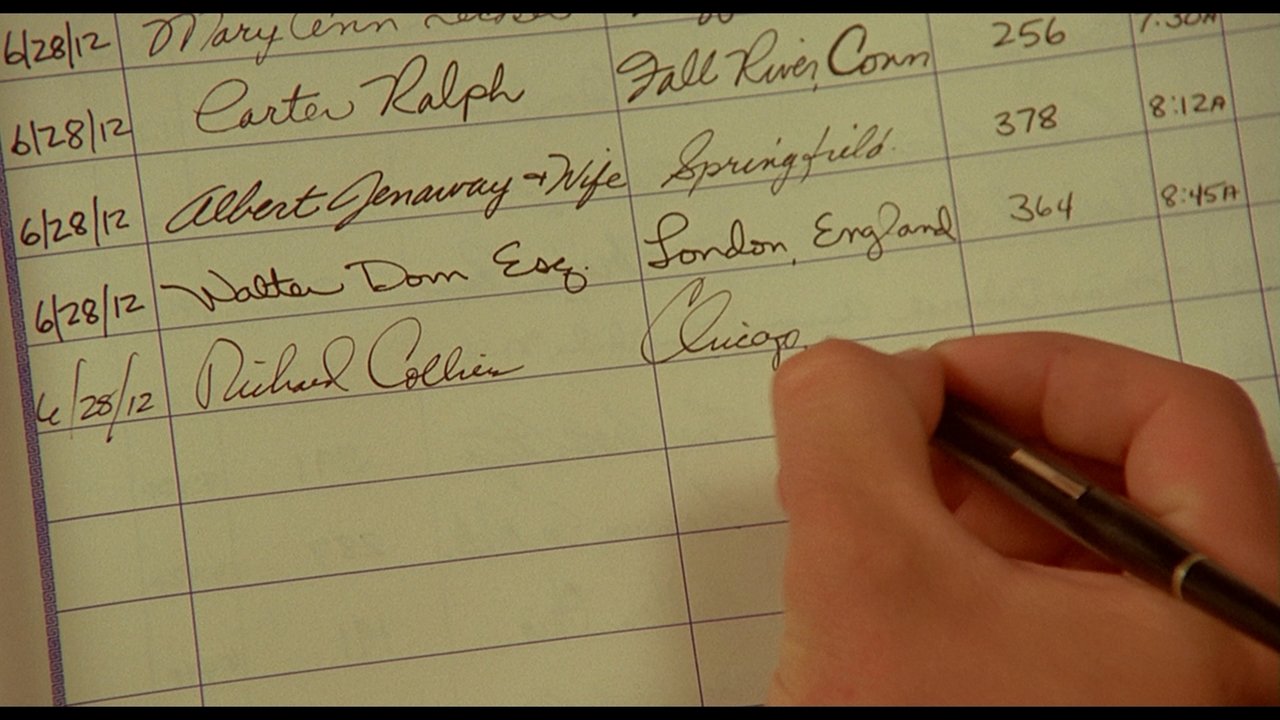 6/28/12 Mary Ann
6/28/12 Carter Ralph Fall River, Conn 256 7:30A
6/28/12 Albert Jenaway + Wife Springfield. 378 8:12A
6/28/12 Walter Dorn Esq. London, England 364 8:45A
6/28/12 Richard Collier Chicago,